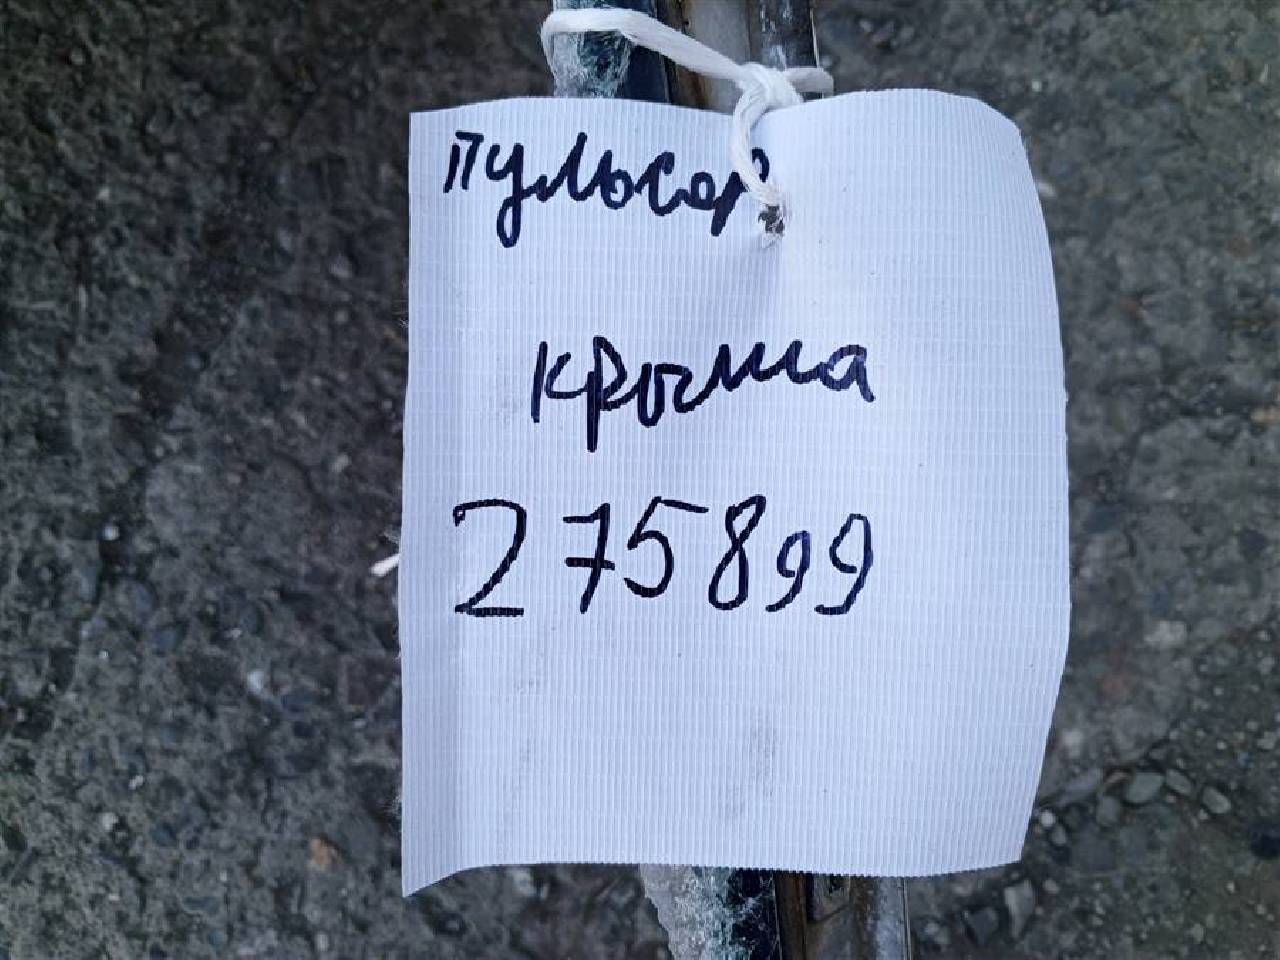 Пульсар
крыша
275899